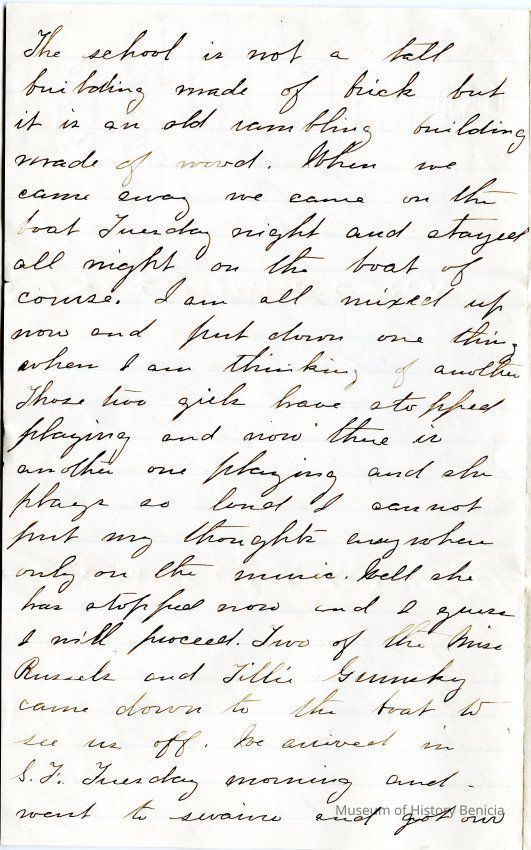 The school is not a tall
building made of brick but
it is an old rambling building
made of wood. When we
came away we came on the
boat Tuesday night and stayed
all night on the boat of
course. I am all mixed up
now and put down one thing
when I am thinking of another
Those two girls have stopped
playing and now there is
another one playing and she
plays so loud I cannot
put my thoughts anywhere
only on the music. Well she
has stopped now and I guess
I will proceed. Two of the Miss
Russels and Tillie
came down to the boat to
see us off. We arrived in
S.F. Tuesday morning and
went to and got our
Museum of History Benicia